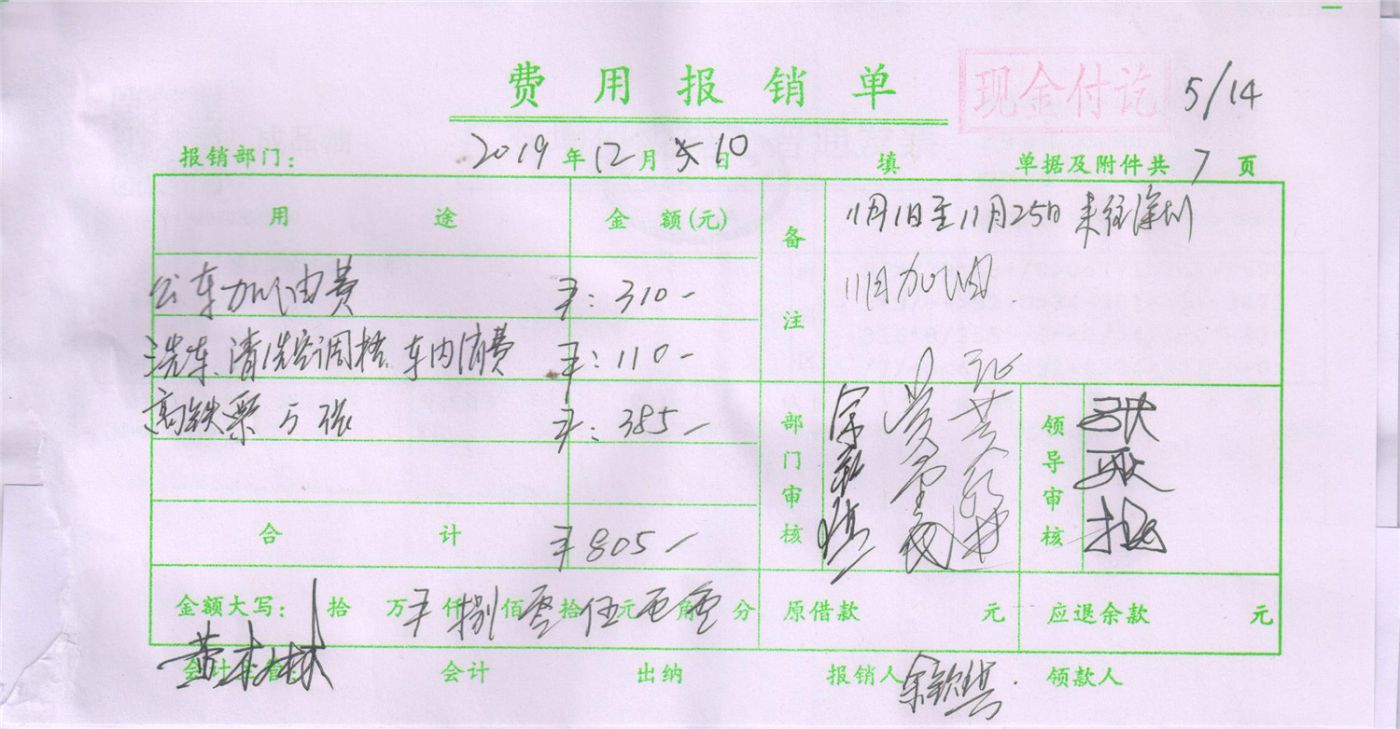 费用报销单 现金付讫 5/14
报销部门: 2019年12月10日 填 单据及附件共7页
用途 金额(元) 备注 11月1日至11月25日来往深圳
公车加油费 ¥:310— 11月加油
洗车.清洗空调格.车内消费 ¥:110—
高铁票5张 ¥:385— 部门审核 领导审核
合计 ¥805—
金额大写: 拾万¥仟捌佰零拾伍元零角零分 原借款 元 应退余款 元
会计主管 会计 出纳 报销人 领款人